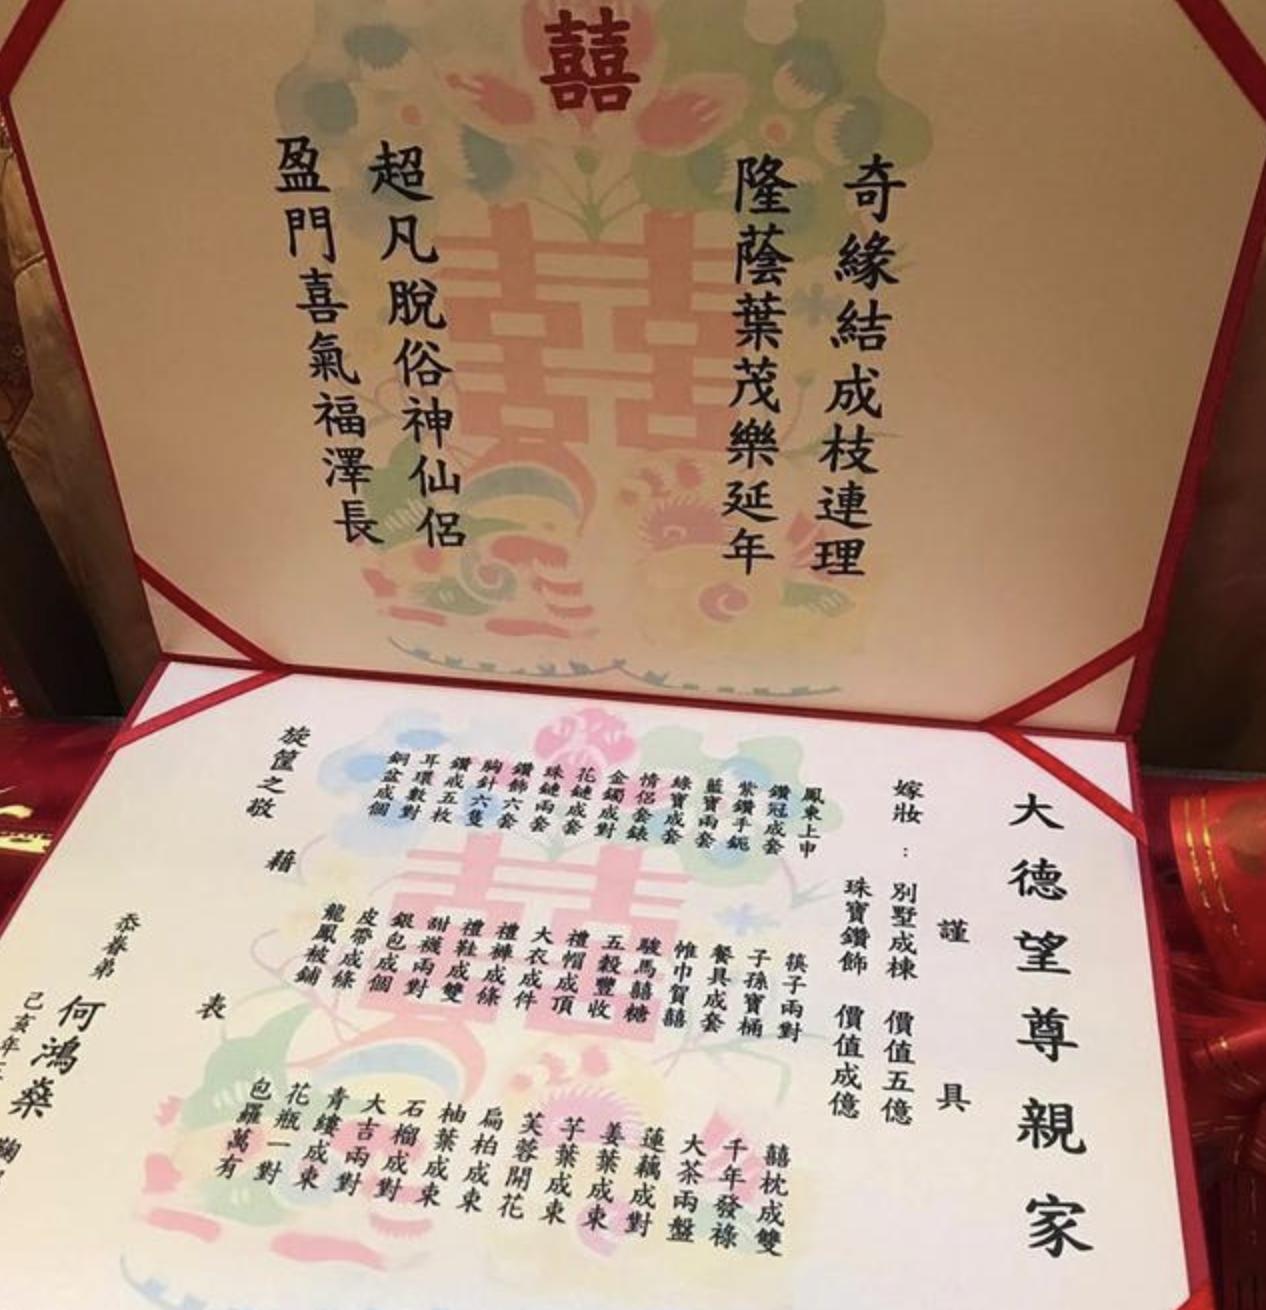 囍
奇緣結成枝連理
隆蔭葉茂樂延年
超凡脫俗神仙侶
盈門喜氣福澤長
大德望尊親家
謹具
嫁妝：別墅成棟 價值五億
珠寶鑽飾 價值成億
鳳東上申
鑽冠成套
紫鑽手鈪
藍寶兩套
綠寶成套
情侶套錶
金鐲成對
花鏈成套
珠鏈兩套
鑽飾六套
胸針六隻
鑽戒五枚
耳環數對
銅盆成個
筷子兩對
子孫寶桶
餐具成套
帷巾賀囍
駿馬囍糖
五穀豐收
禮帽成頂
大衣成件
禮褲成條
禮鞋成雙
甜襪兩對
銀包成個
皮帶成條
龍鳳被鋪
囍枕成雙
千年發祿
大茶兩盤
蓮藕成對
姜葉成束
芋葉成束
芙蓉開花
扁柏成束
柚葉成束
石榴成對
大吉兩對
青縷成束
花瓶一對
包羅萬有
旋筐之敬 藉 表
忝眷弟 何鴻燊 鞠
己亥年